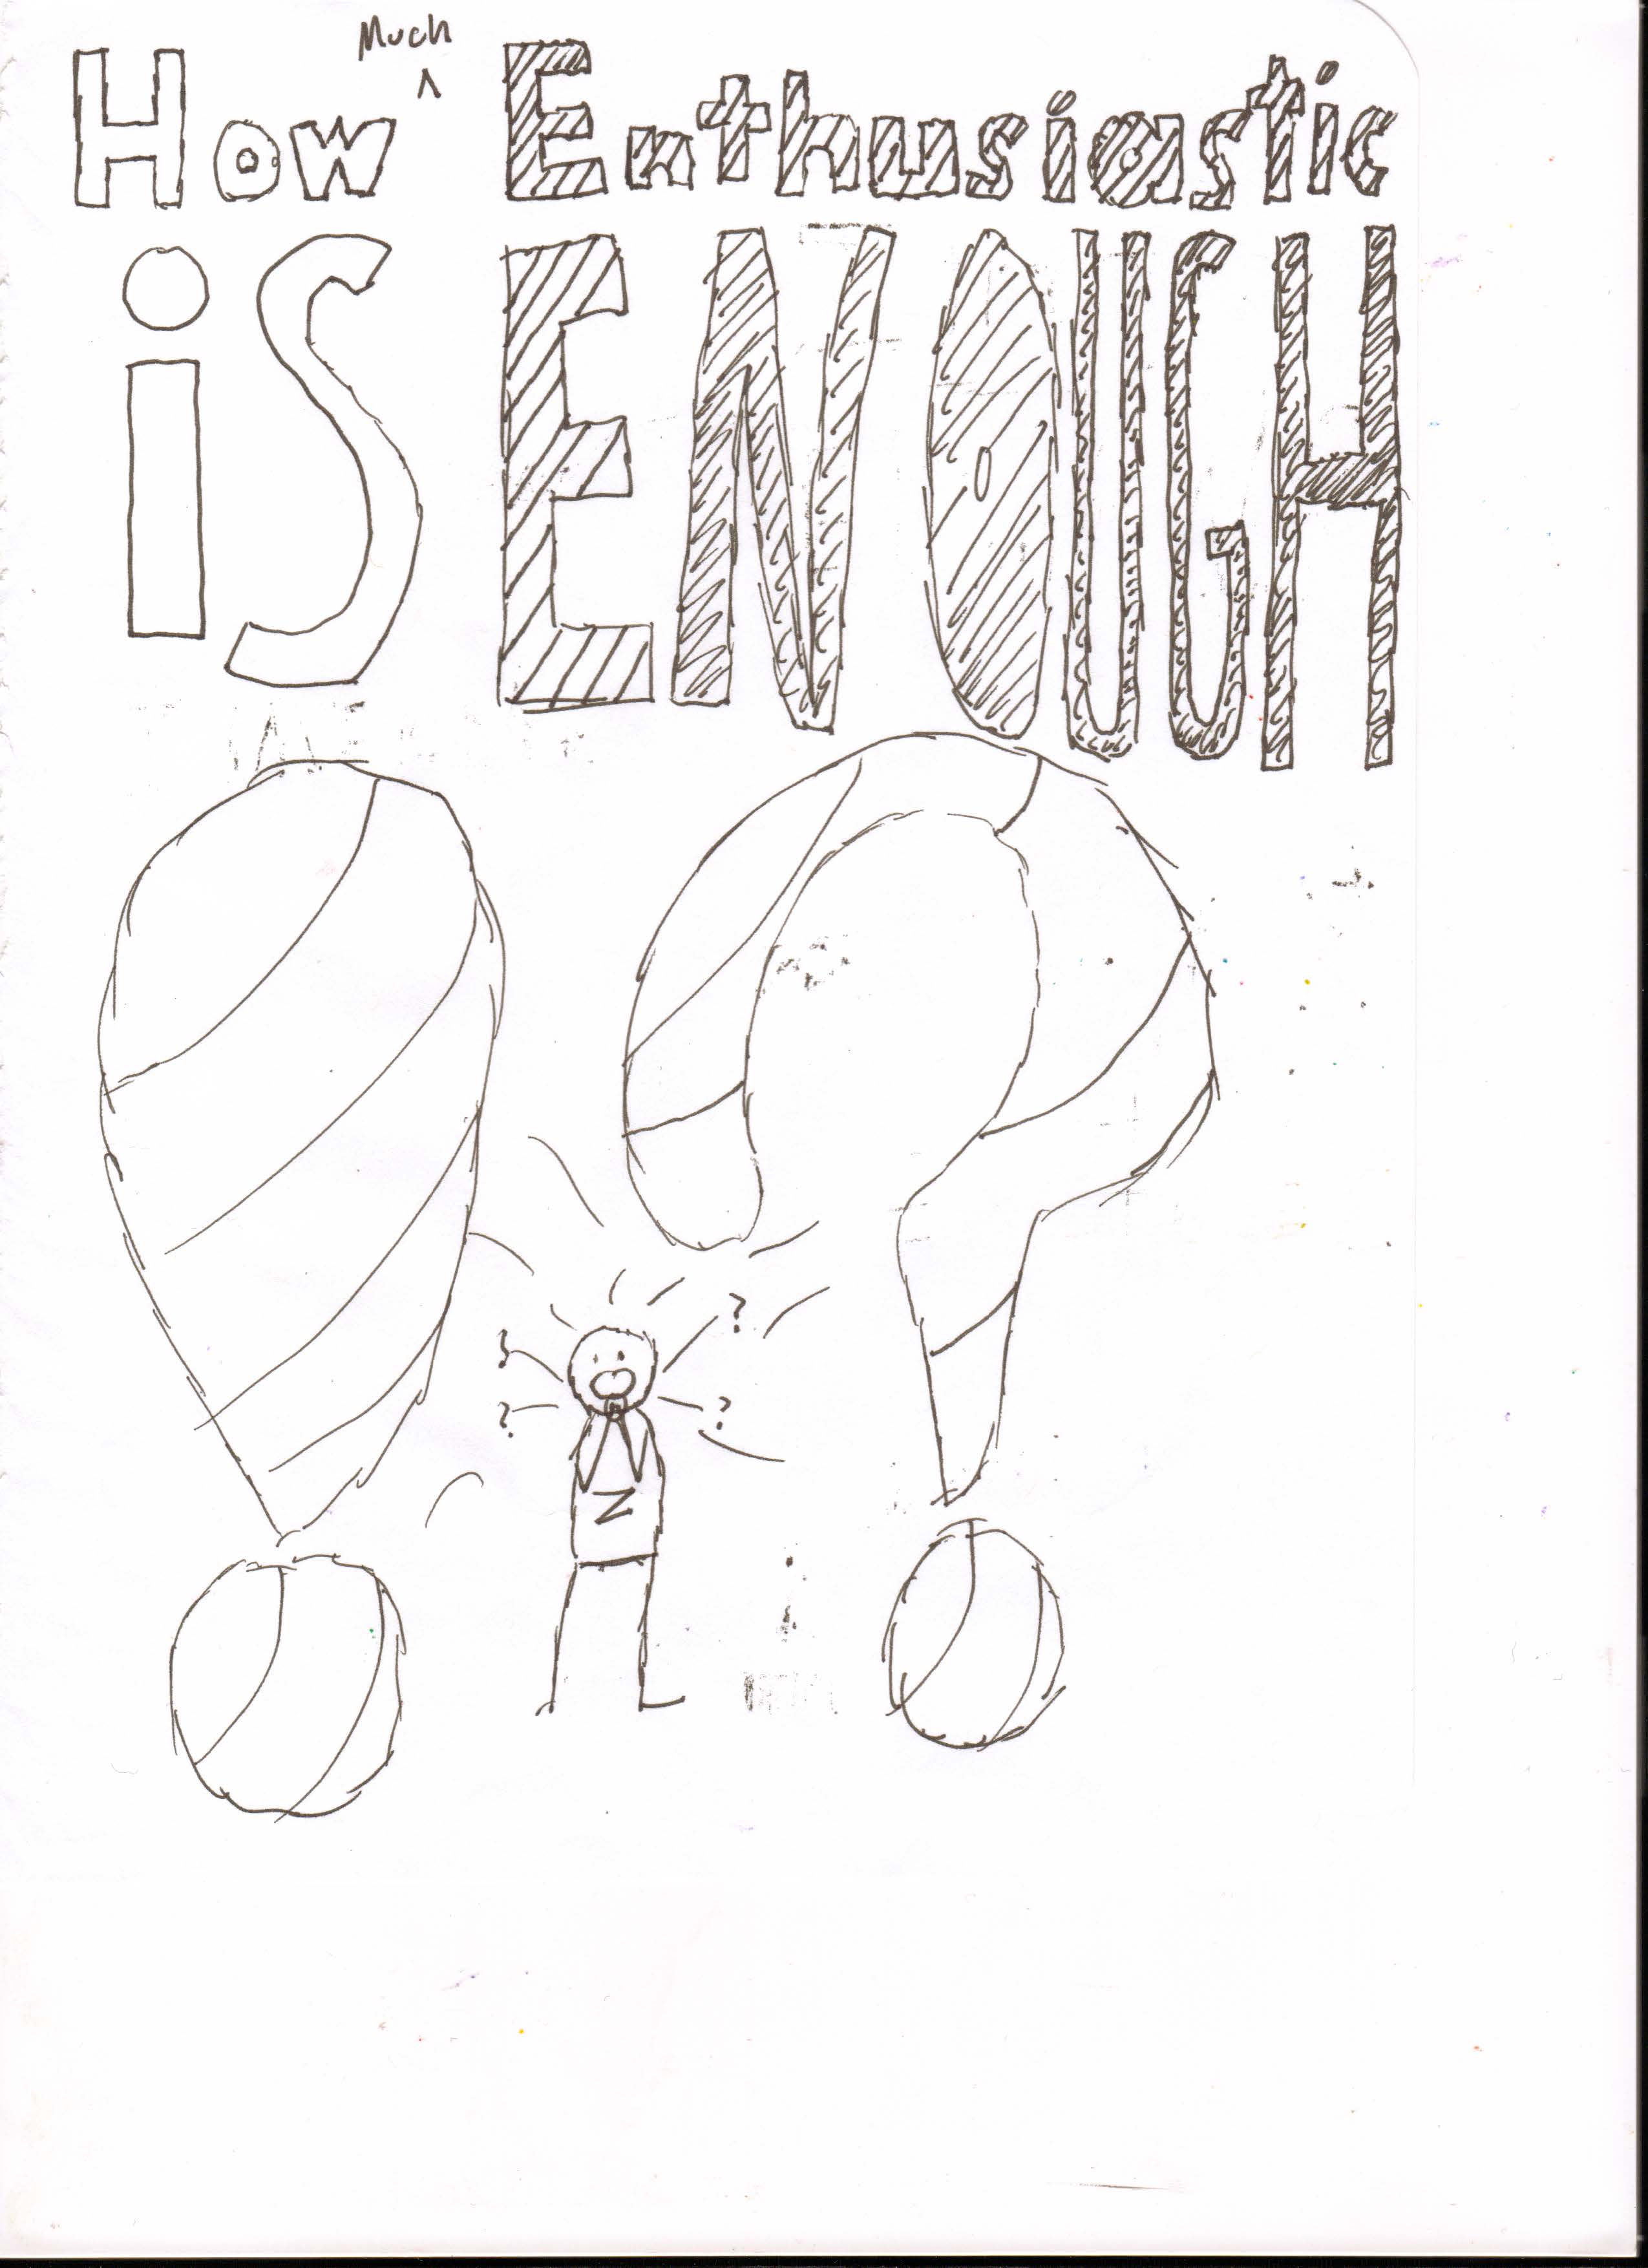 How Much Enthusiastic
iS ENOUGH
!?
?
? ?
? ?
N